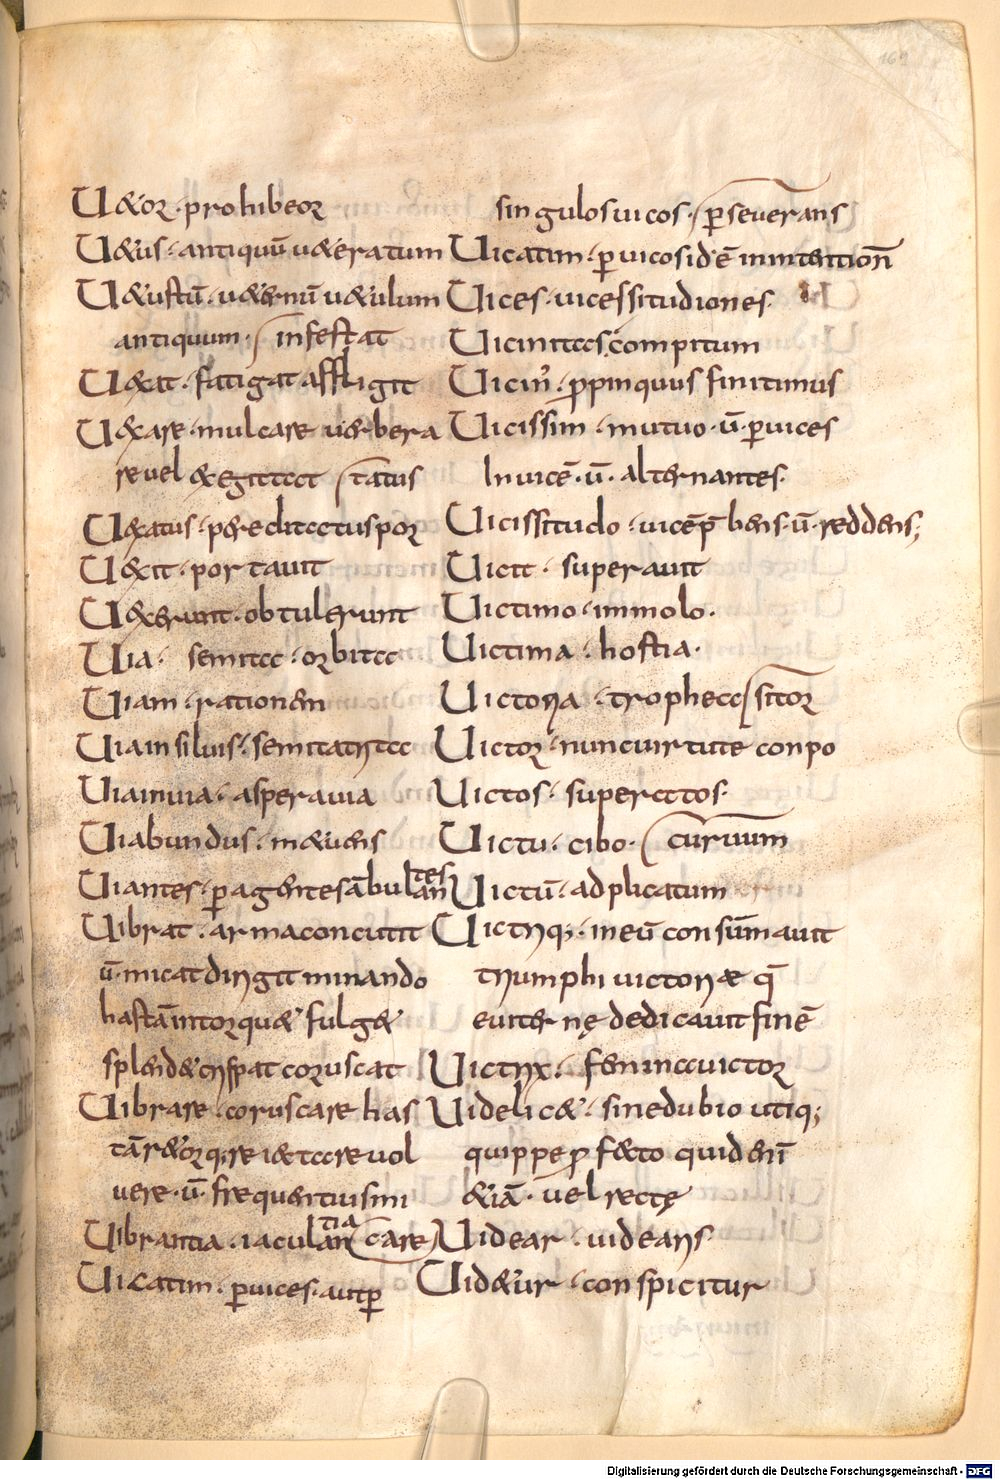 169
Uetor · prohibeor
Uetus · antiquū ueteratum
Uetustū · ueternū uetulum
antiquum · infestat
Uexat · fatigat affligit
Uexare · mulcare uerbera
re uel exegitat status
Uexatus · per
Uexit · portauit
Uexerunt · obtulerunt
Uia · semita · orbita
Uiam · rationem
Uiam siluis · semitatrita
Uiaminuia · asperauia
Uiabundus · inetuens
Uiantes · ꝑagentes ābulantes
Uibrat · arma concutit
ū · micat dirigit minando
hastā intorquet fulget
splendet crispat coruscat
Uibrare · coruscare has
tā retorq;re iactare uol
uere · ū · frequentius ini
Uibrantia · iaculantia care
Uicatim · ꝑuices · aut ꝑ
singulos uicos · ꝑseuerans
Uicatim · ꝑ uicos id ē in intentionē
Uices · uicessitudiones
Uicinitas · compitum
Uicin᾿ · ꝓpinquus finitimus
Uicissim · mutuo · ū · ꝑuices
Inuicē · ū · alternantes
Uicissitudo · uicē p̄bens · ū · reddens;
Uicit · superauit
Uictimo · immolo ·
Uictima · hostia ·
Uictoria · trophea sitor
Uictor · nunc uirtute conpo
Uictos · superatos
Uictu · cibo · curuum
Uictū · adplicatum
Uictriq; · in eū consūmauit
triumphi uictoriae q̄
euiternę dedicauit finē
Uictrix · femina uictor
Uidelicet · sine dubio utiq;
quippe ꝓ facto quidem
etiā · uel rectę
Uidear · uidearis
Uidetur · conspicitur
Digitalisierung gefördert durch die Deutsche Forschungsgemeinschaft - DFG